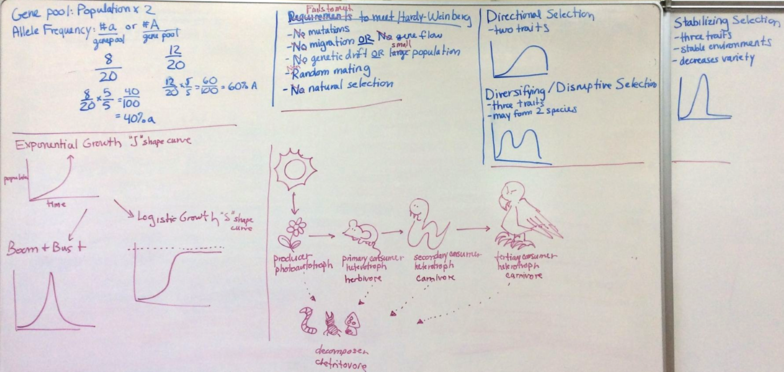 Gene pool: Population x 2
Allele Frequency: #a/gene pool or #A/gene pool
8/20 12/20
8/20 x 5/5 = 40/100
= 40% a
12/20 x 5/5 = 60/100 = 60% A
Fails to meet
Requirements to meet Hardy-Weinberg
- No mutations
- No migration OR No gene flow
small
- No genetic drift OR large population
- Random mating
- No natural selection
Directional Selection
- two traits
Diversifying/Disruptive Selection
- three traits
- may form 2 species
Stabilizing Selection
- three traits
- stable environments
- decreases variety
Exponential Growth "J" shape curve
population
time
Logistic Growth "S" shape
curve
Boom + Bust
producer
photoautotroph
primary consumer
heterotroph
herbivore
secondary consumer
heterotroph
carnivore
tertiary consumer
heterotroph
carnivore
decomposer
detritovore